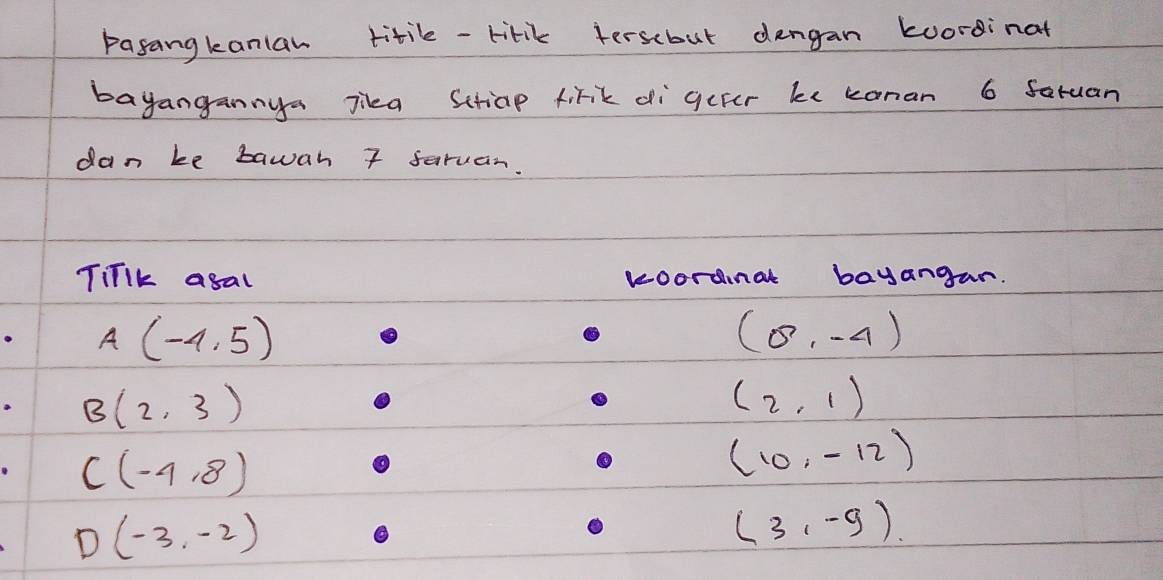 Pasangkanlah titik - titik tersebut dengan koordinat
bayangannya jika setiap titik di geser ke kanan 6 satuan
dan ke bawah 7 satuan.
TITIK asal koordinat bayangan.
A (-4,5) (8,-4)
B (2, 3) (2, 1)
C (-4,8) (10,-12)
D (-3,-2) (3,-9).